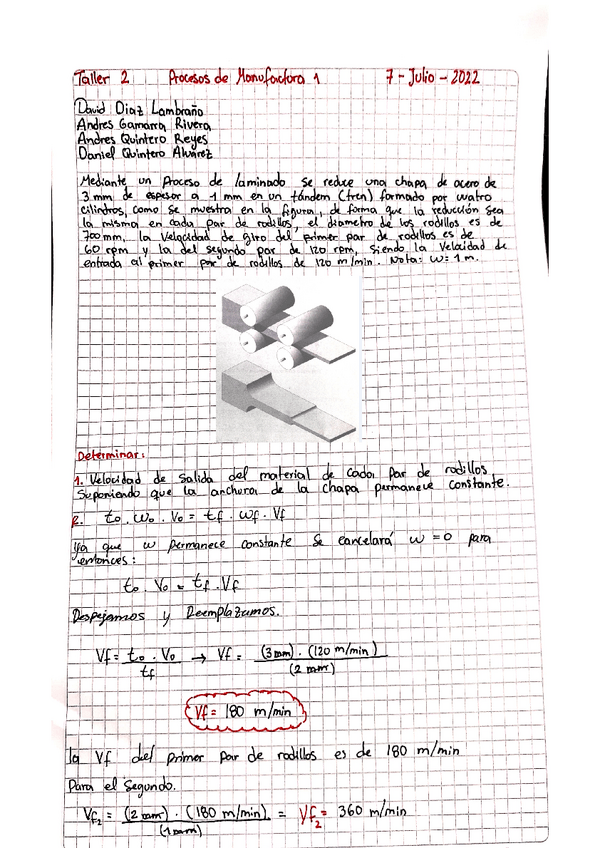 Taller 2 Procesos de Manufactura 1 7 - Julio - 2022
David Diaz Lambraño
Andres Gamarra Rivera
Andres Quintero Reyes
Daniel Quintero Alvarez
Mediante un proceso de laminado se reduce una chapa de acero de
3 mm de espesor a 1 mm en un tándem (tren) formado por cuatro
cilindros, como se muestra en la figura, de forma que la reducción sea
la misma en cada par de rodillos, el diametro de los rodillos es de
700 mm, la velocidad de giro del primer par de rodillos es de
60 rpm y la del segundo par de 120 rpm, siendo la velocidad de
entrada al primer par de rodillos de 120 m/min. Nota: w = 1 m.
Determinar:
1. Velocidad de salida del material de cada par de rodillos
Suponiendo que la anchura de la chapa permanece constante.
R. to . wo . Vo = tf . wf . Vf
Ya que w permanece constante se cancelará w = 0 para
entonces:
to . Vo = tf . Vf
Despejamos y Reemplazamos.
Vf = to . Vo / tf → Vf = (3 mm) . (120 m/min) / (2 mm)
Vf = 180 m/min
la Vf del primer par de rodillos es de 180 m/min
Para el segundo.
Vf2 = (2 mm) . (180 m/min) / (1 mm) = Vf2 = 360 m/min